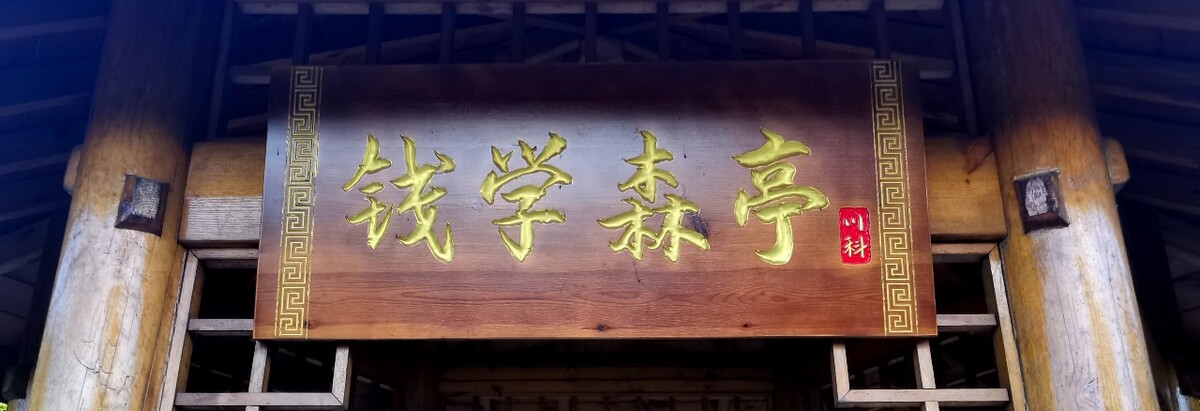 钱学森亭
川科